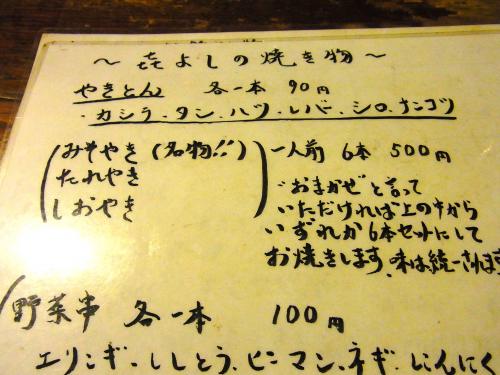 ～㐂よしの焼き物～
やきとん 各一本 90円
・カシラ・タン・ハツ・レバー・シロ・ナンコツ
みそやき（名物!!）
たれやき
しおやき
一人前 6本 500円
"おまかせ"と言って
いただければ上の中から
いずれか6本セットにして
お焼きします。味は統一されます
野菜串 各一本 100円
エリンギ・ししとう・ピーマン・ネギ・にんにく